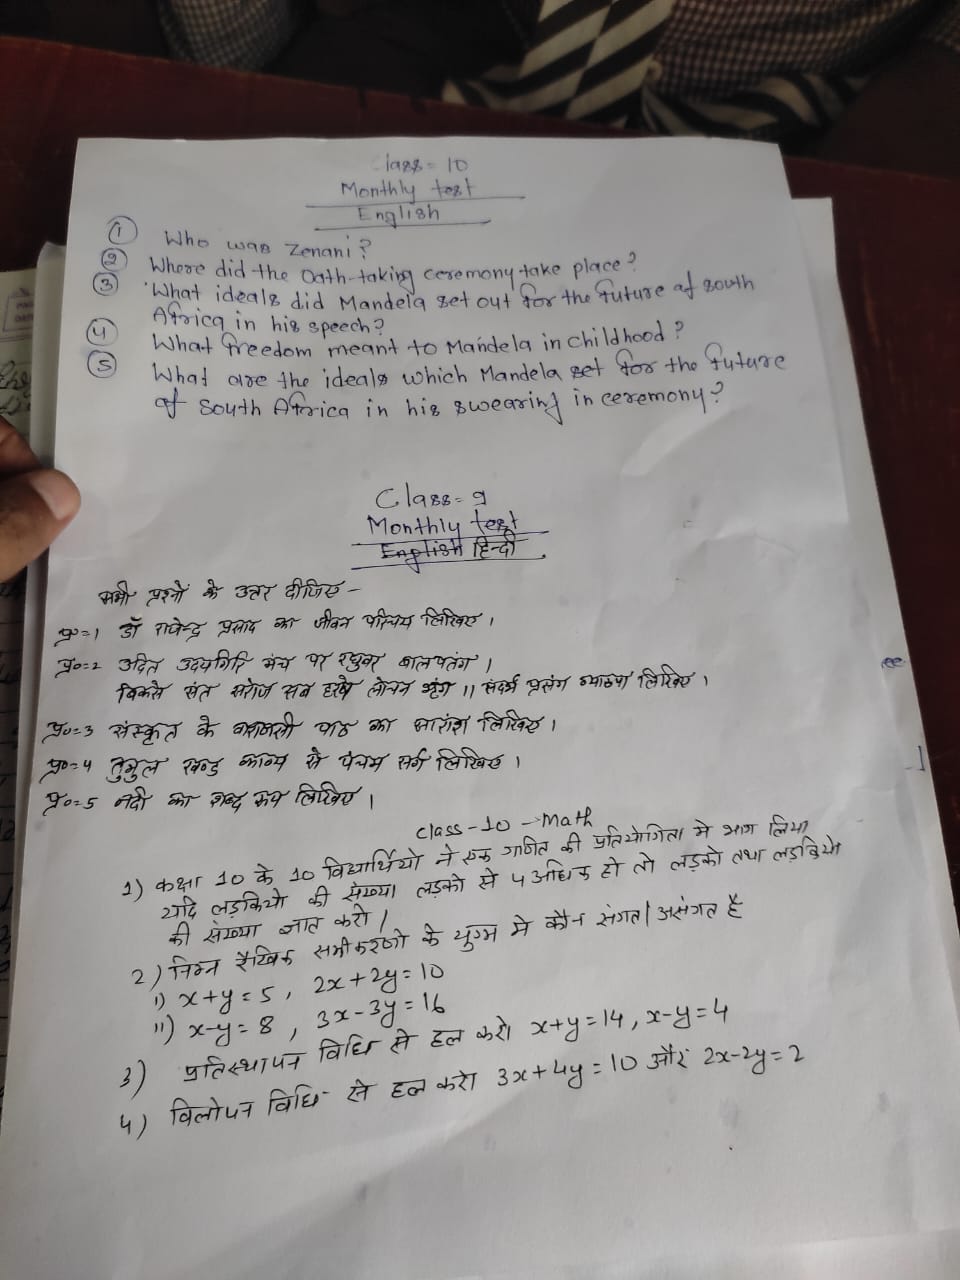 Class = 10
Monthly test
English
① Who was Zenani?
② Where did the Oath-taking ceremony take place?
③ What ideals did Mandela set out for the future of south
Africa in his speech?
④ What freedom meant to Mandela in childhood?
⑤ What are the ideals which Mandela set for the future
of South Africa in his swearing in ceremony?
Class = 9
Monthly test
English हिन्दी
सभी प्रश्नों के उत्तर दीजिए -
प्र०=1 डॉ राजेन्द्र प्रसाद का जीवन परिचय लिखिए।
प्र०=2 उदित उदयगिरि मंच पर रघुवर बालपतंग।
विकसे संत सरोज सब हरषे लोचन भृंग।। संदर्भ प्रसंग व्याख्या लिखिए।
प्र०=3 संस्कृत के वाराणसी पाठ का सारांश लिखिए।
प्र०=4 तुमुल खण्ड काव्य से पंचम सर्ग लिखिए।
प्र०=5 नदी का शब्द रूप लिखिए।
class-10 → Math
1) कक्षा 10 के 10 विद्यार्थियो ने एक गणित की प्रतियोगिता मे भाग लिया
यदि लड़कियो की संख्या लड़को से 4 अधिक हो तो लड़को तथा लड़कियो
की संख्या ज्ञात करो।
2) निम्न रैखिक समीकरणो के युग्म मे कौन संगत/असंगत है
i) x+y=5, 2x+2y=10
ii) x-y=8, 3x-3y=16
3) प्रतिस्थापन विधि से हल करो x+y=14, x-y=4
4) विलोपन विधि से हल करो 3x+4y=10 और 2x-2y=2